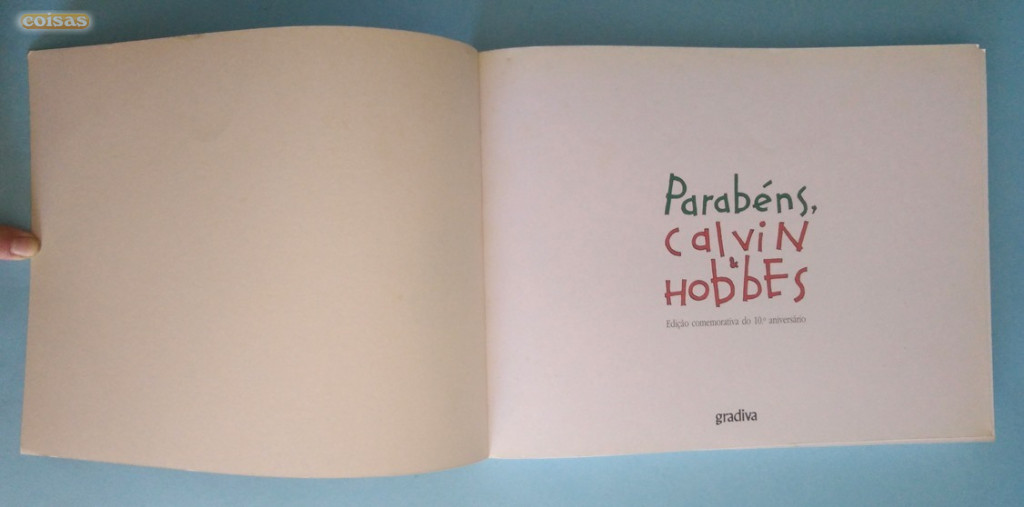 coisas
Parabéns,
CalviN
&
HobbEs
Edição comemorativa do 10.º aniversário
gradiva